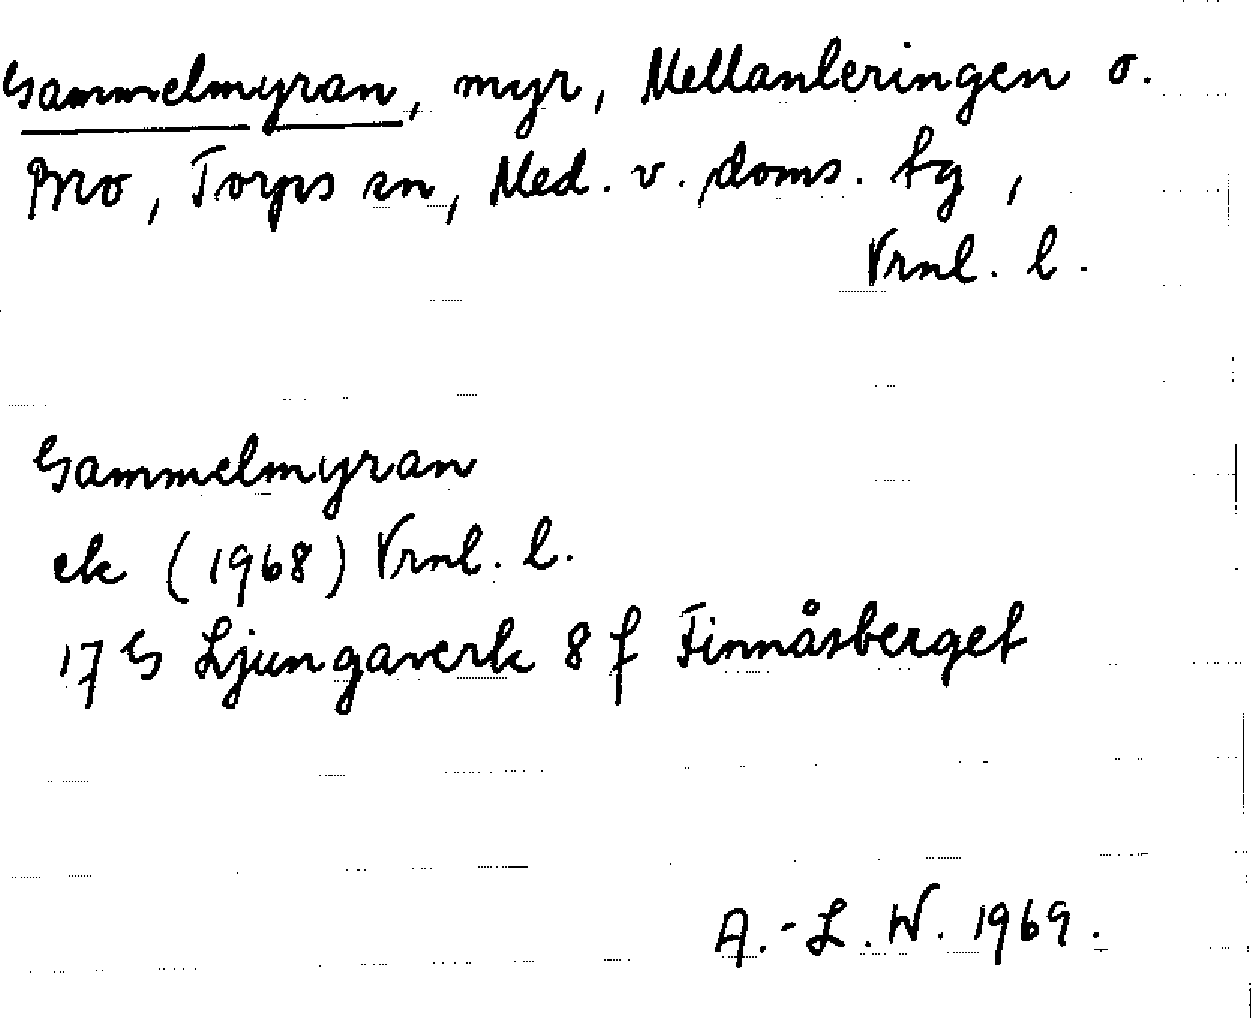 Gammelmyran, myr, Mellanleringen o.
Bro, Torps sn, Med. v. doms. hg,
Vrnl. l.
Gammelmyran
ek (1968) Vrnl. l.
17 G Ljungaverk 8 f Finnåsberget
A.-L. W. 1969.